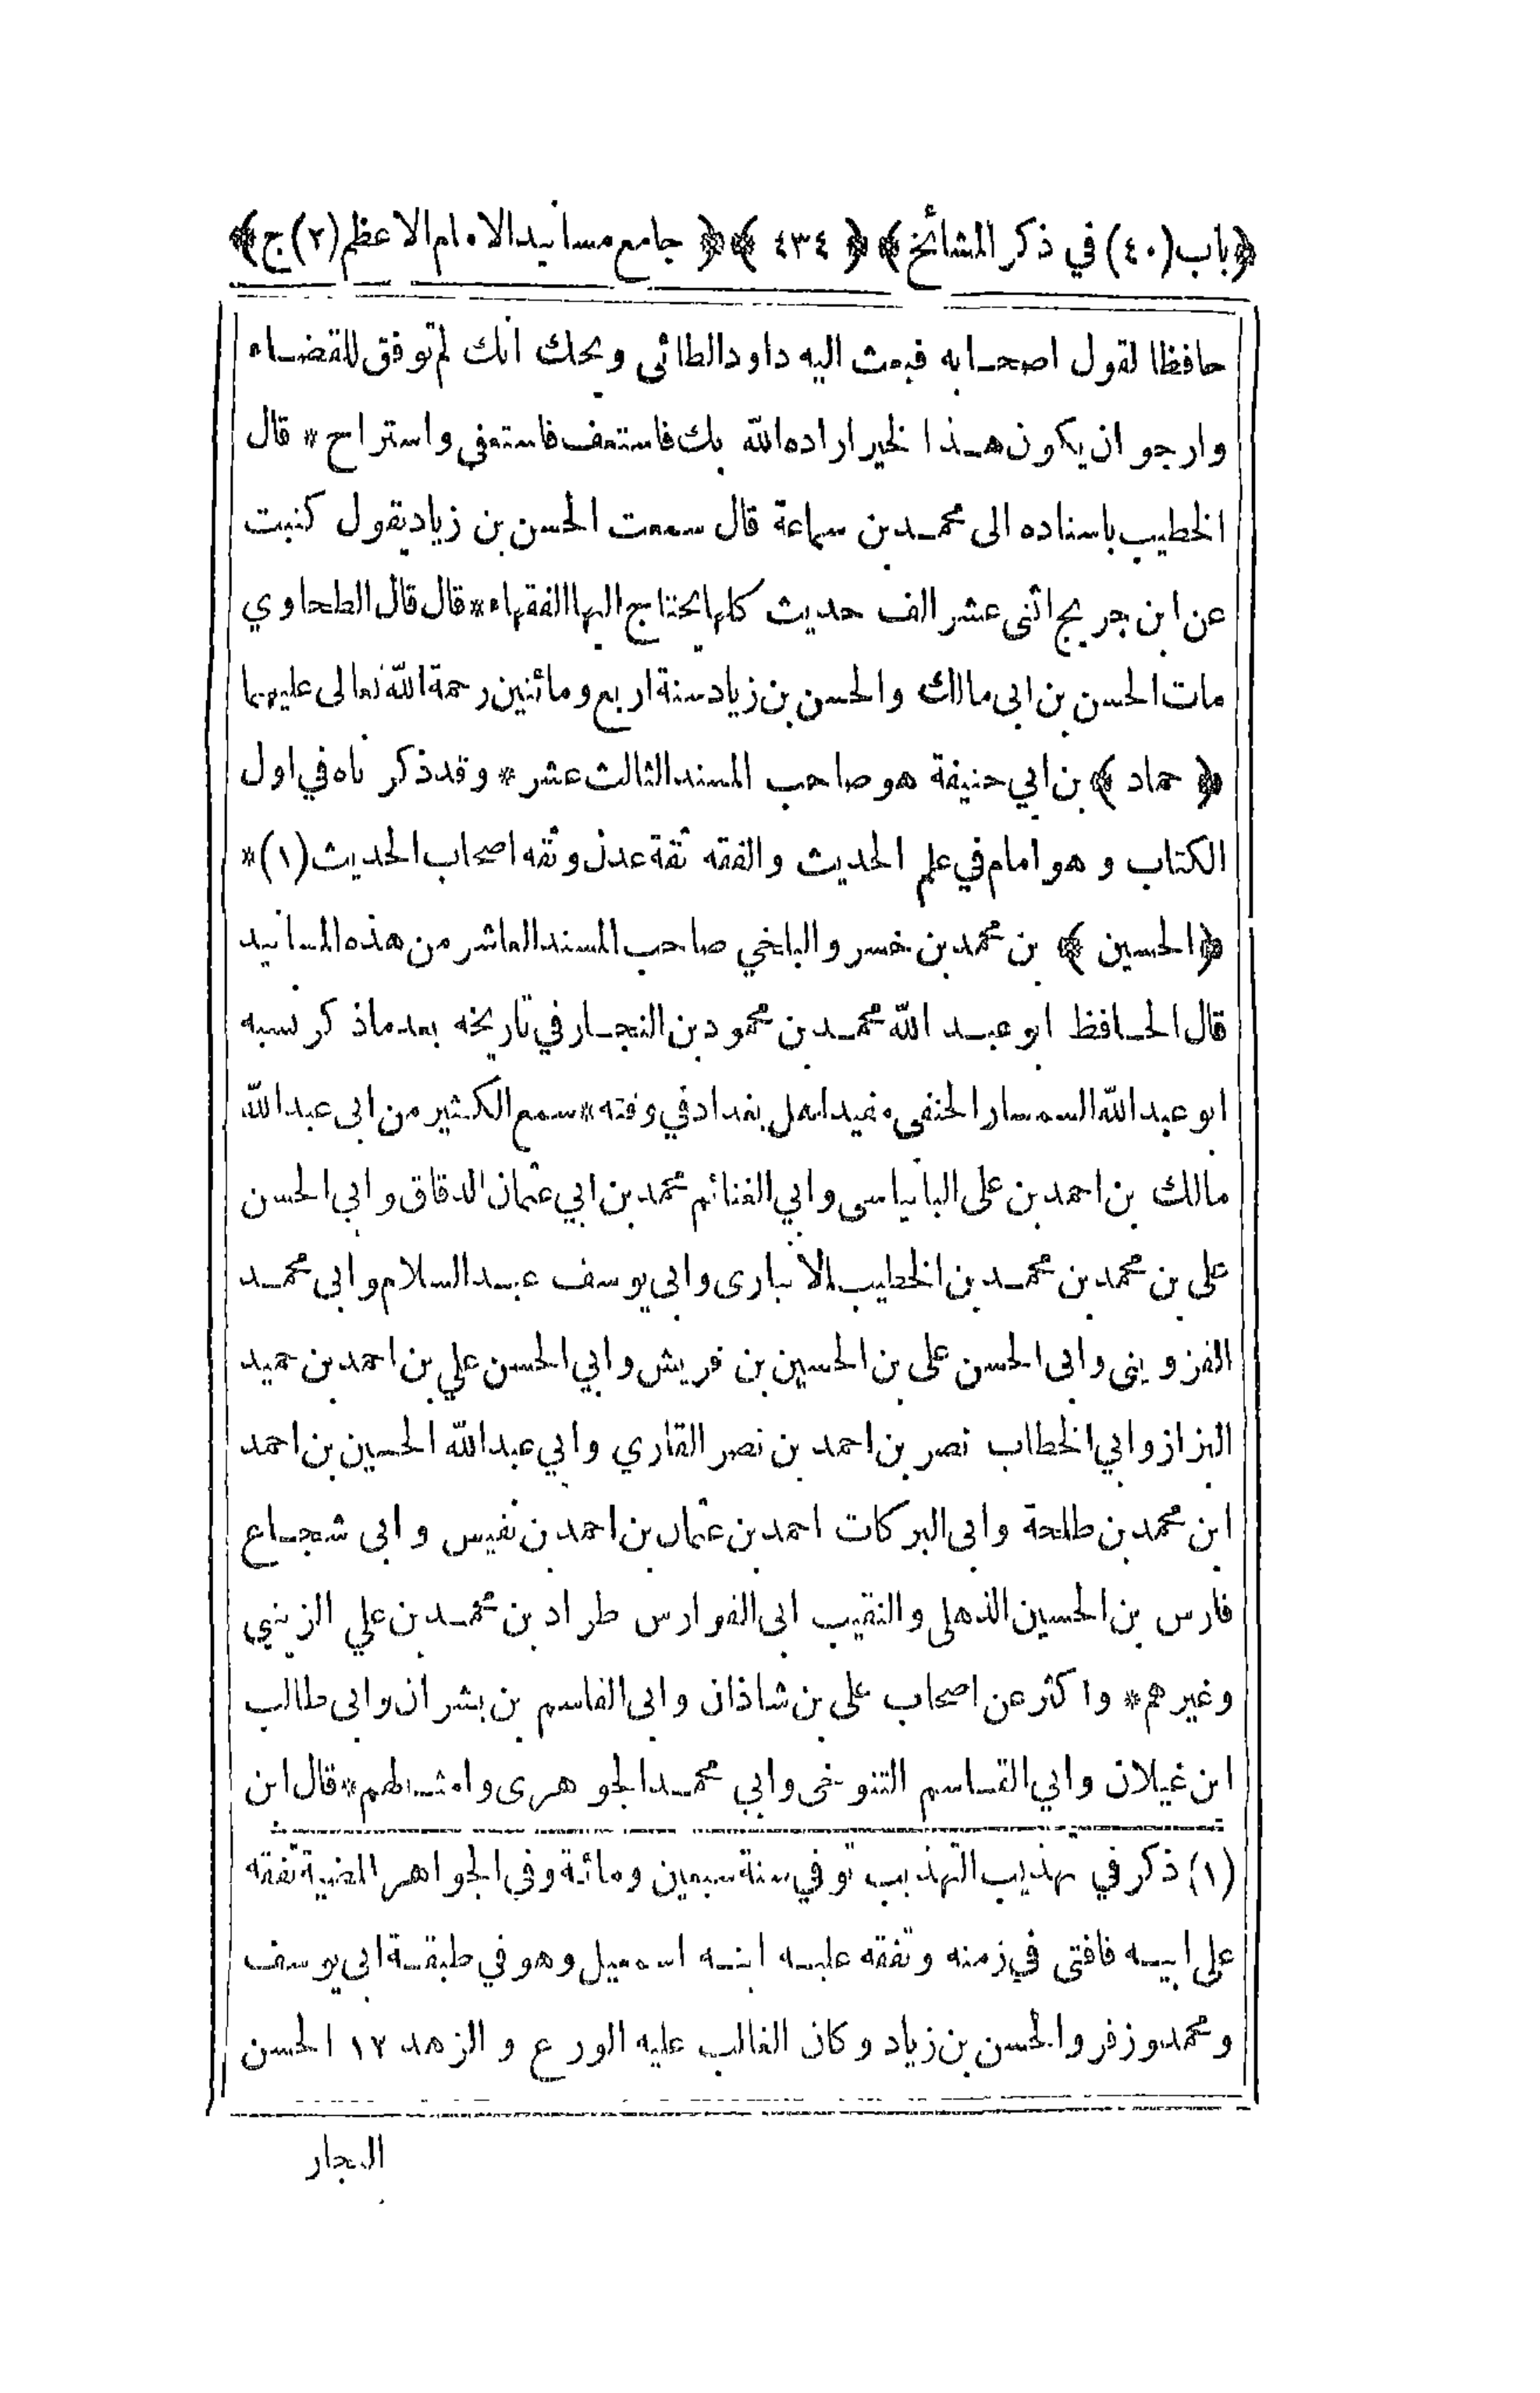 ﴿باب(٤٠) في ذكر المشائخ﴾ ﴿ ٤٣٤ ﴾ ﴿ جامع مسانيد الامام الاعظم(٢)ج﴾
حافظا لقول اصحابه فبعث اليه داود الطائى ويحك انك لم توفق للقضاء
وارجو ان يكون هذا لخير اراده الله بك فاستعف فاستعفى واستراح * قال
الخطيب باسناده الى محمد بن سماعة قال سمعت الحسن بن زياد يقول كتبت
عن ابن جريج اثنى عشر الف حديث كلها يحتاج اليها الفقهاء * قال قال الطحاوي
مات الحسن بن ابى مالك والحسن بن زياد سنة اربع ومائتين رحمة الله تعالى عليهما
﴿ حماد ﴾ بن ابي حنيفة هو صاحب المسند الثالث عشر * وقد ذكر ناه في اول
الكتاب و هو امام في علم الحديث والفقه ثقة عدل وثقه اصحاب الحديث (١) *
﴿ الحسين ﴾ بن محمد بن خسر والبلخي صاحب المسند العاشر من هذه المسانيد
قال الحافظ ابو عبد الله محمد بن محمود بن النجار في تاريخه بعد ماذ كر نسبه
ابو عبد الله السمسار الحنفى مفيد اهل بغداد في وقته * سمع الكثير من ابى عبد الله
مالك بن احمد بن على البانياسى وابي الغنائم محمد بن ابي عثمان الدقاق وابي الحسن
على بن محمد بن محمد بن الخطيب الانبارى وابى يوسف عبد السلام وابى محمد
القزوينى وابى الحسن على بن الحسين بن قريش وابي الحسن علي بن احمد بن حميد
البزاز وابي الخطاب نصر بن احمد بن نصر القاري وابي عبد الله الحسين بن احمد
ابن محمد بن طلحة وابى البركات احمد بن عثمان بن احمد بن نفيس و ابى شجاع
فارس بن الحسين الذهلى والنقيب ابى الفوارس طراد بن محمد بن علي الزينبي
وغيرهم * واكثر عن اصحاب على بن شاذان وابى القاسم بن بشران وابى طالب
ابن غيلان وابي القاسم التنوخى وابي محمد الجوهرى وامثالهم * قال ابن
(١) ذكر في تهذيب التهذيب توفي سنة سبعين ومائة وفى الجواهر المضية تفقه
على ابيه فافتى في زمنه وتفقه عليه ابنه اسمعيل وهو في طبقة ابى يوسف
ومحمد وزفر والحسن بن زياد وكان الغالب عليه الورع و الزهد ١٢ الحسن
النجار